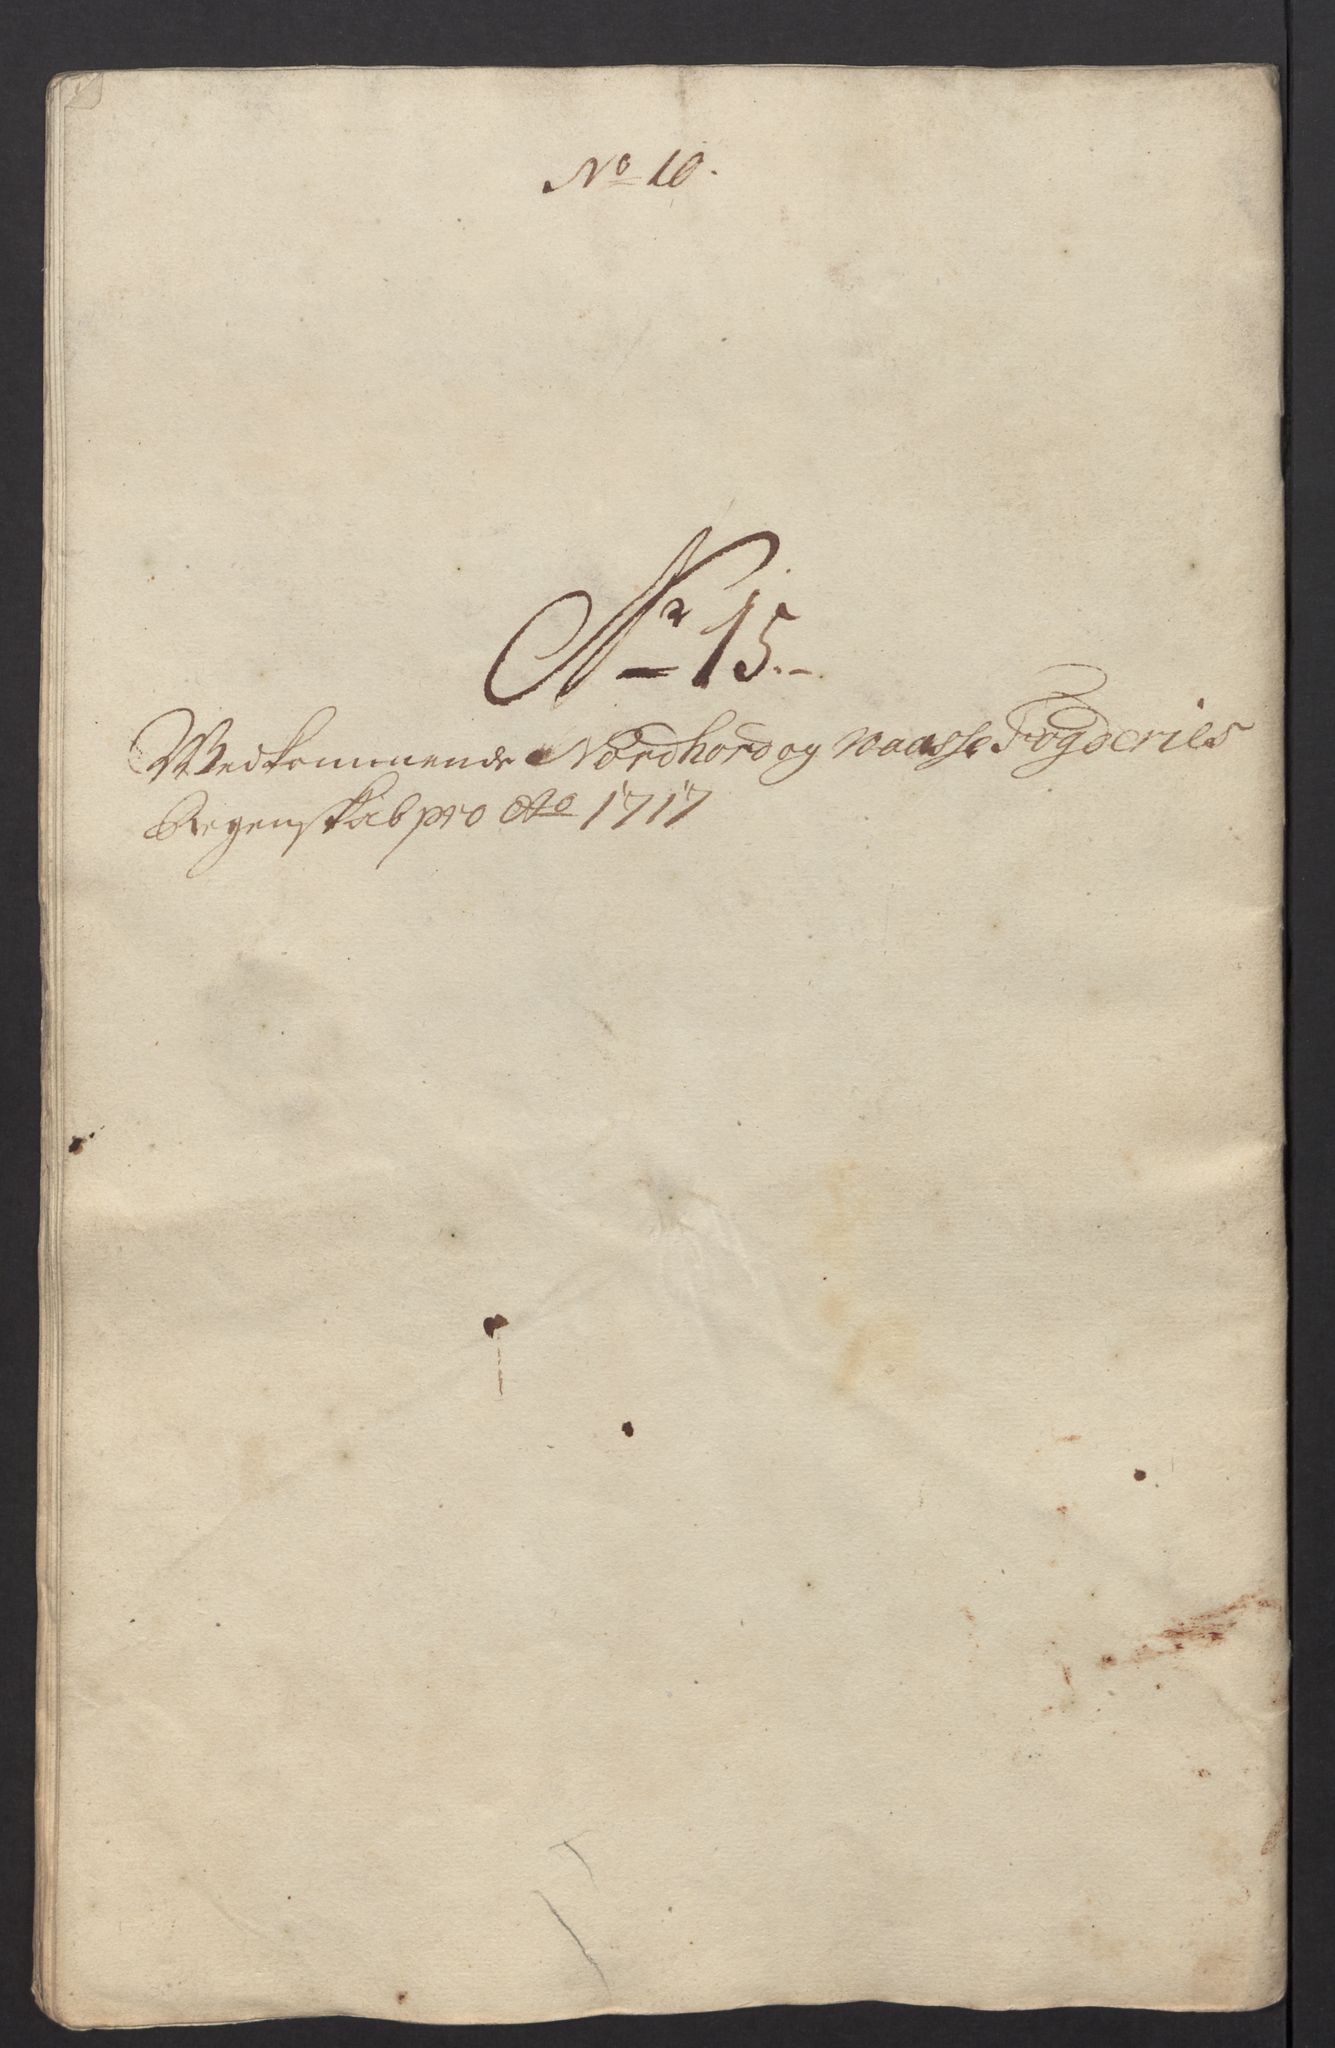 No 10.
Nr 15.
Vedkommende Nordhord og Vaasse Fogderies
Regenskab pro Ao 1717